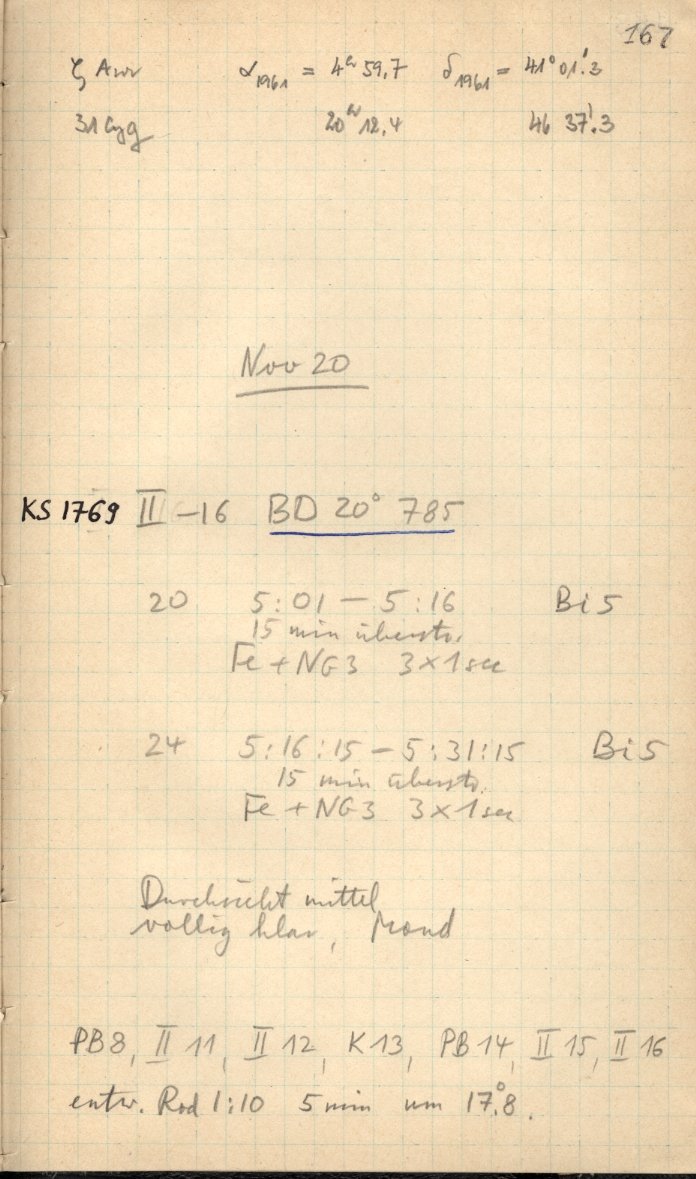 167
ζ Aur α1961 = 4h 59,7 δ1961 = 41° 01'.3
31 Cyg 20h 12,4 46 37'.3
Nov 20
KS 1769 II -16 BD 20° 785
20 5:01 — 5:16 Bi 5
15 min überstr.
Fe + NG3 3×1 sec
24 5:16:15 — 5:31:15 Bi 5
15 min überstr.
Fe + NG3 3×1 sec
Durchsicht mittel
völlig klar, Mond
PB8, II 11, II 12, K13, PB14, II 15, II 16
entw. Rod 1:10 5 min um 17°.8.